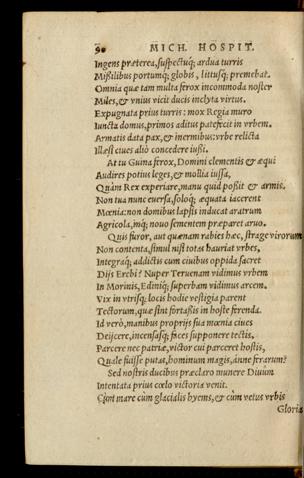 90 MICH. HOSPIT.
Ingens præterea, suspectuq; ardua turris
Missilibus portumq; globis, littusq; premebat.
Omnia quæ tam multa ferox incommoda noster
Miles, & vnius vicit ducis inclyta virtus.
Expugnata prius turris: mox Regia muro
Iuncta domus, primos aditus patefecit in vrbem.
Armatis data pax, & inermibus: vrbe relicta
Illæsi ciues aliò concedere iussi.
At tu Guina ferox, Domini clementis & æqui
Audires potius leges, & mollia iussa,
Quàm Rex experiare, manu quid possit & armis.
Non tua nunc euersa, soloq; æquata iacerent
Mœnia: non domibus lapsis inducat aratrum
Agricola, inq; nouo sementem præparet aruo.
Quis furor, aut quænam rabies hæc, strage virorum
Non contenta, simul nisi totas hauriat vrbes,
Integraq; addictis cum ciuibus oppida sacret
Dijs Erebi? Nuper Teruenam vidimus vrbem
In Morinis, Ediniq; superbam vidimus arcem.
Vix in vtrisq; locis hodie vestigia parent
Tectorum, quæ sint fortassis in hoste ferenda.
Id verò, manibus proprijs sua mœnia ciues
Deijcere, incensasq; faces supponere tectis,
Parcere nec patriæ, victor cui parceret hostis,
Quale fuisse putas, hominum magis, ánne ferarum?
Sed nostris ducibus præclaro munere Diuûm
Intentata prius cœlo victoria venit.
Cùm mare cùm glacialis hyems, & cùm vetus vrbis
Gloria